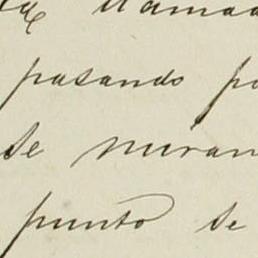 llamad
pasando po
se miran
punto se